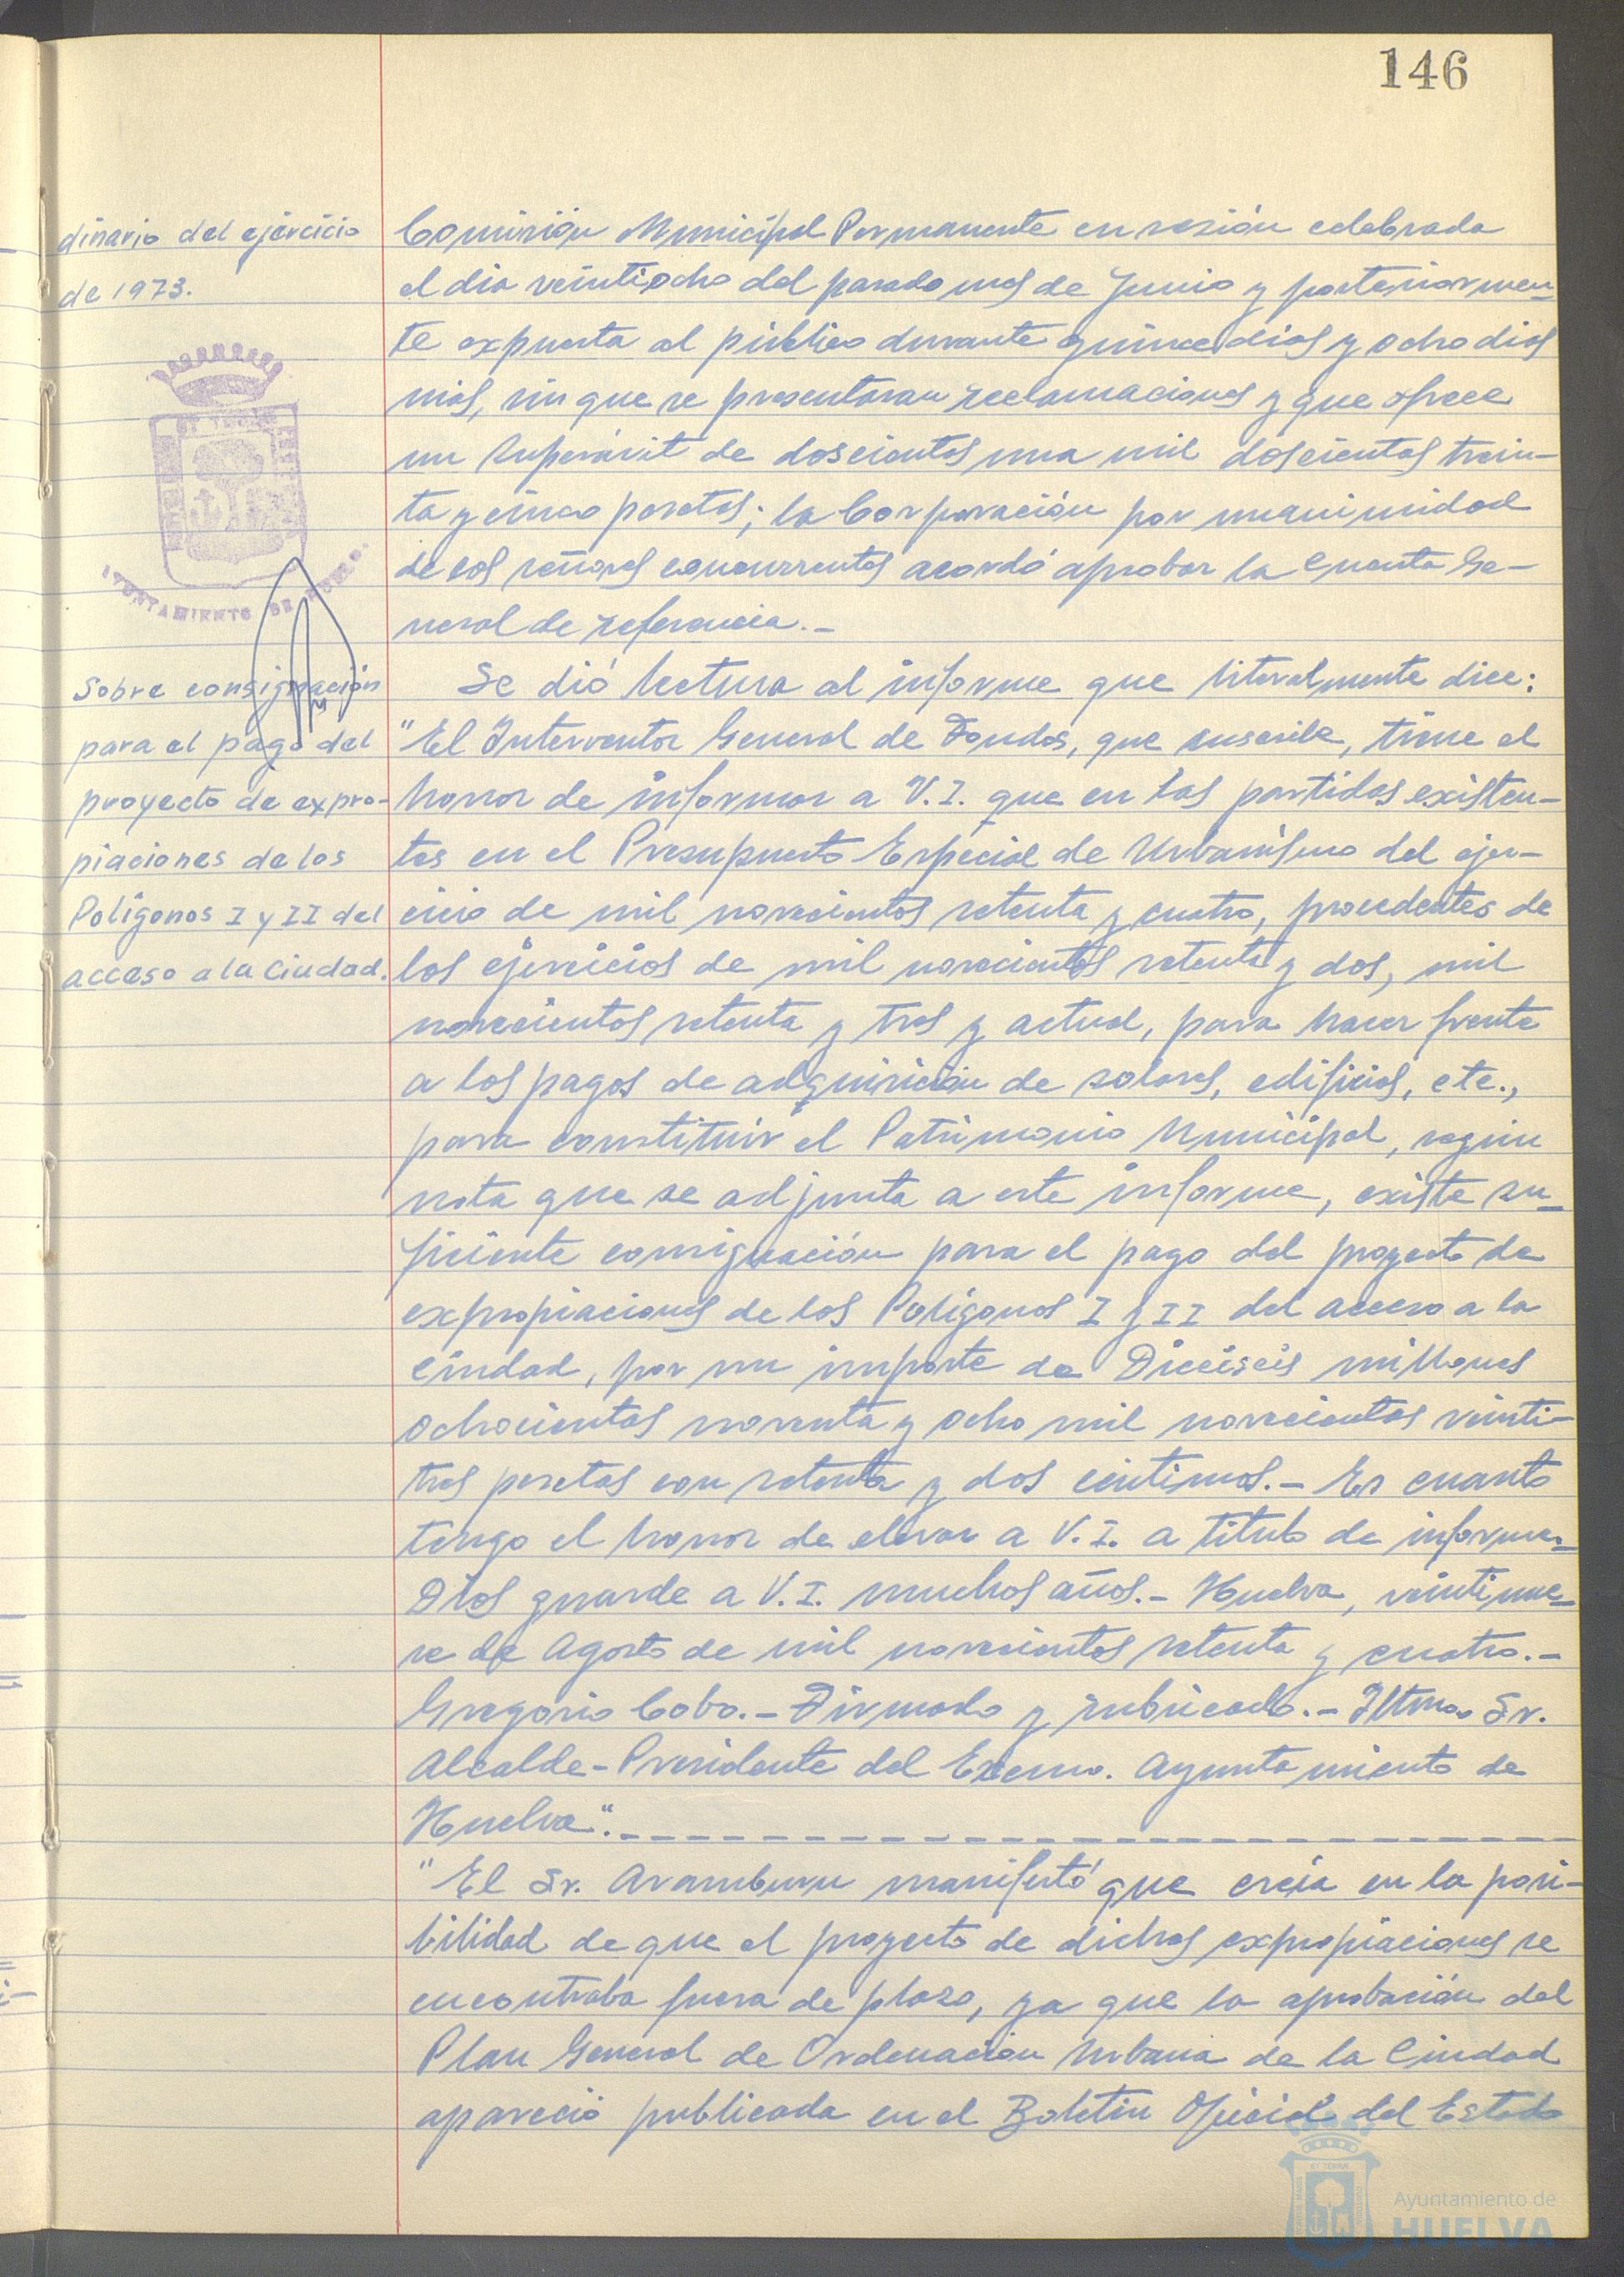 146
dinario del ejercicio
de 1973.
AYUNTAMIENTO DE HUELVA.
Sobre consignación
para el pago del
proyecto de expro-
piaciones de los
Polígonos I y II del
acceso a la Ciudad.
Comisión Municipal Permanente en sesión celebrada
el dia veintiocho del pasado mes de Junio y posteriormen-
te expuesta al público durante quince dias y ocho dias
más, sin que se presentaran reclamaciones y que ofrece
un superávit de doscientas una mil doscientas trein-
ta y cinco pesetas; la Corporación por unanimidad
de los señores concurrentes acordó aprobar la Cuenta Ge-
neral de referencia.-
Se dió lectura al informe que literalmente dice:
"El Interventor General de Fondos, que suscribe, tiene el
honor de informar a V.I. que en las partidas existen-
tes en el Presupuesto Especial de Urbanismo del ejer-
cicio de mil novecientos setenta y cuatro, procedentes de
los ejercicios de mil novecientos setenta y dos, mil
novecientos setenta y tres y actual, para hacer frente
a los pagos de adquisición de solares, edificios, etc.,
para constituir el Patrimonio Municipal, según
nota que se adjunta a este informe, existe su-
ficiente consignación para el pago del proyecto de
expropiaciones de los Polígonos I y II del acceso a la
Ciudad, por un importe de Dieciseis millones
ochocientas noventa y ocho mil novecientas veinti-
tres pesetas con setenta y dos céntimos.- Es cuanto
tengo el honor de elevar a V.I. a título de informe.-
Dios guarde a V.I. muchos años.- Huelva, veintinue-
ve de Agosto de mil novecientos setenta y cuatro.-
Gregorio Cobo.- Firmado y rubricado.- Iltmo. Sr.
Alcalde-Presidente del Excmo. Ayuntamiento de
Huelva".-
"El Sr. Aramburu manifestó que creía en la posi-
bilidad de que el proyecto de dichas expropiaciones se
encontraba fuera de plazo, ya que la aprobación del
Plan General de Ordenación Urbana de la Ciudad
apareció publicada en el Boletin Oficial del Estado
Ayuntamiento de
HUELVA